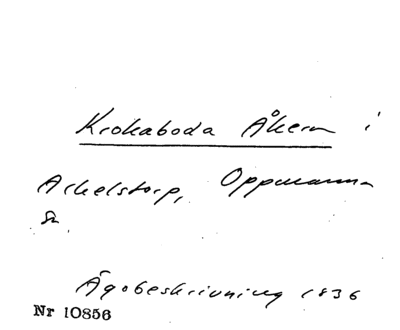 Krokaboda Åkern i
Arkelstorp, Oppmanna
sn.
Ägobeskrivning 1836
Nr 10856